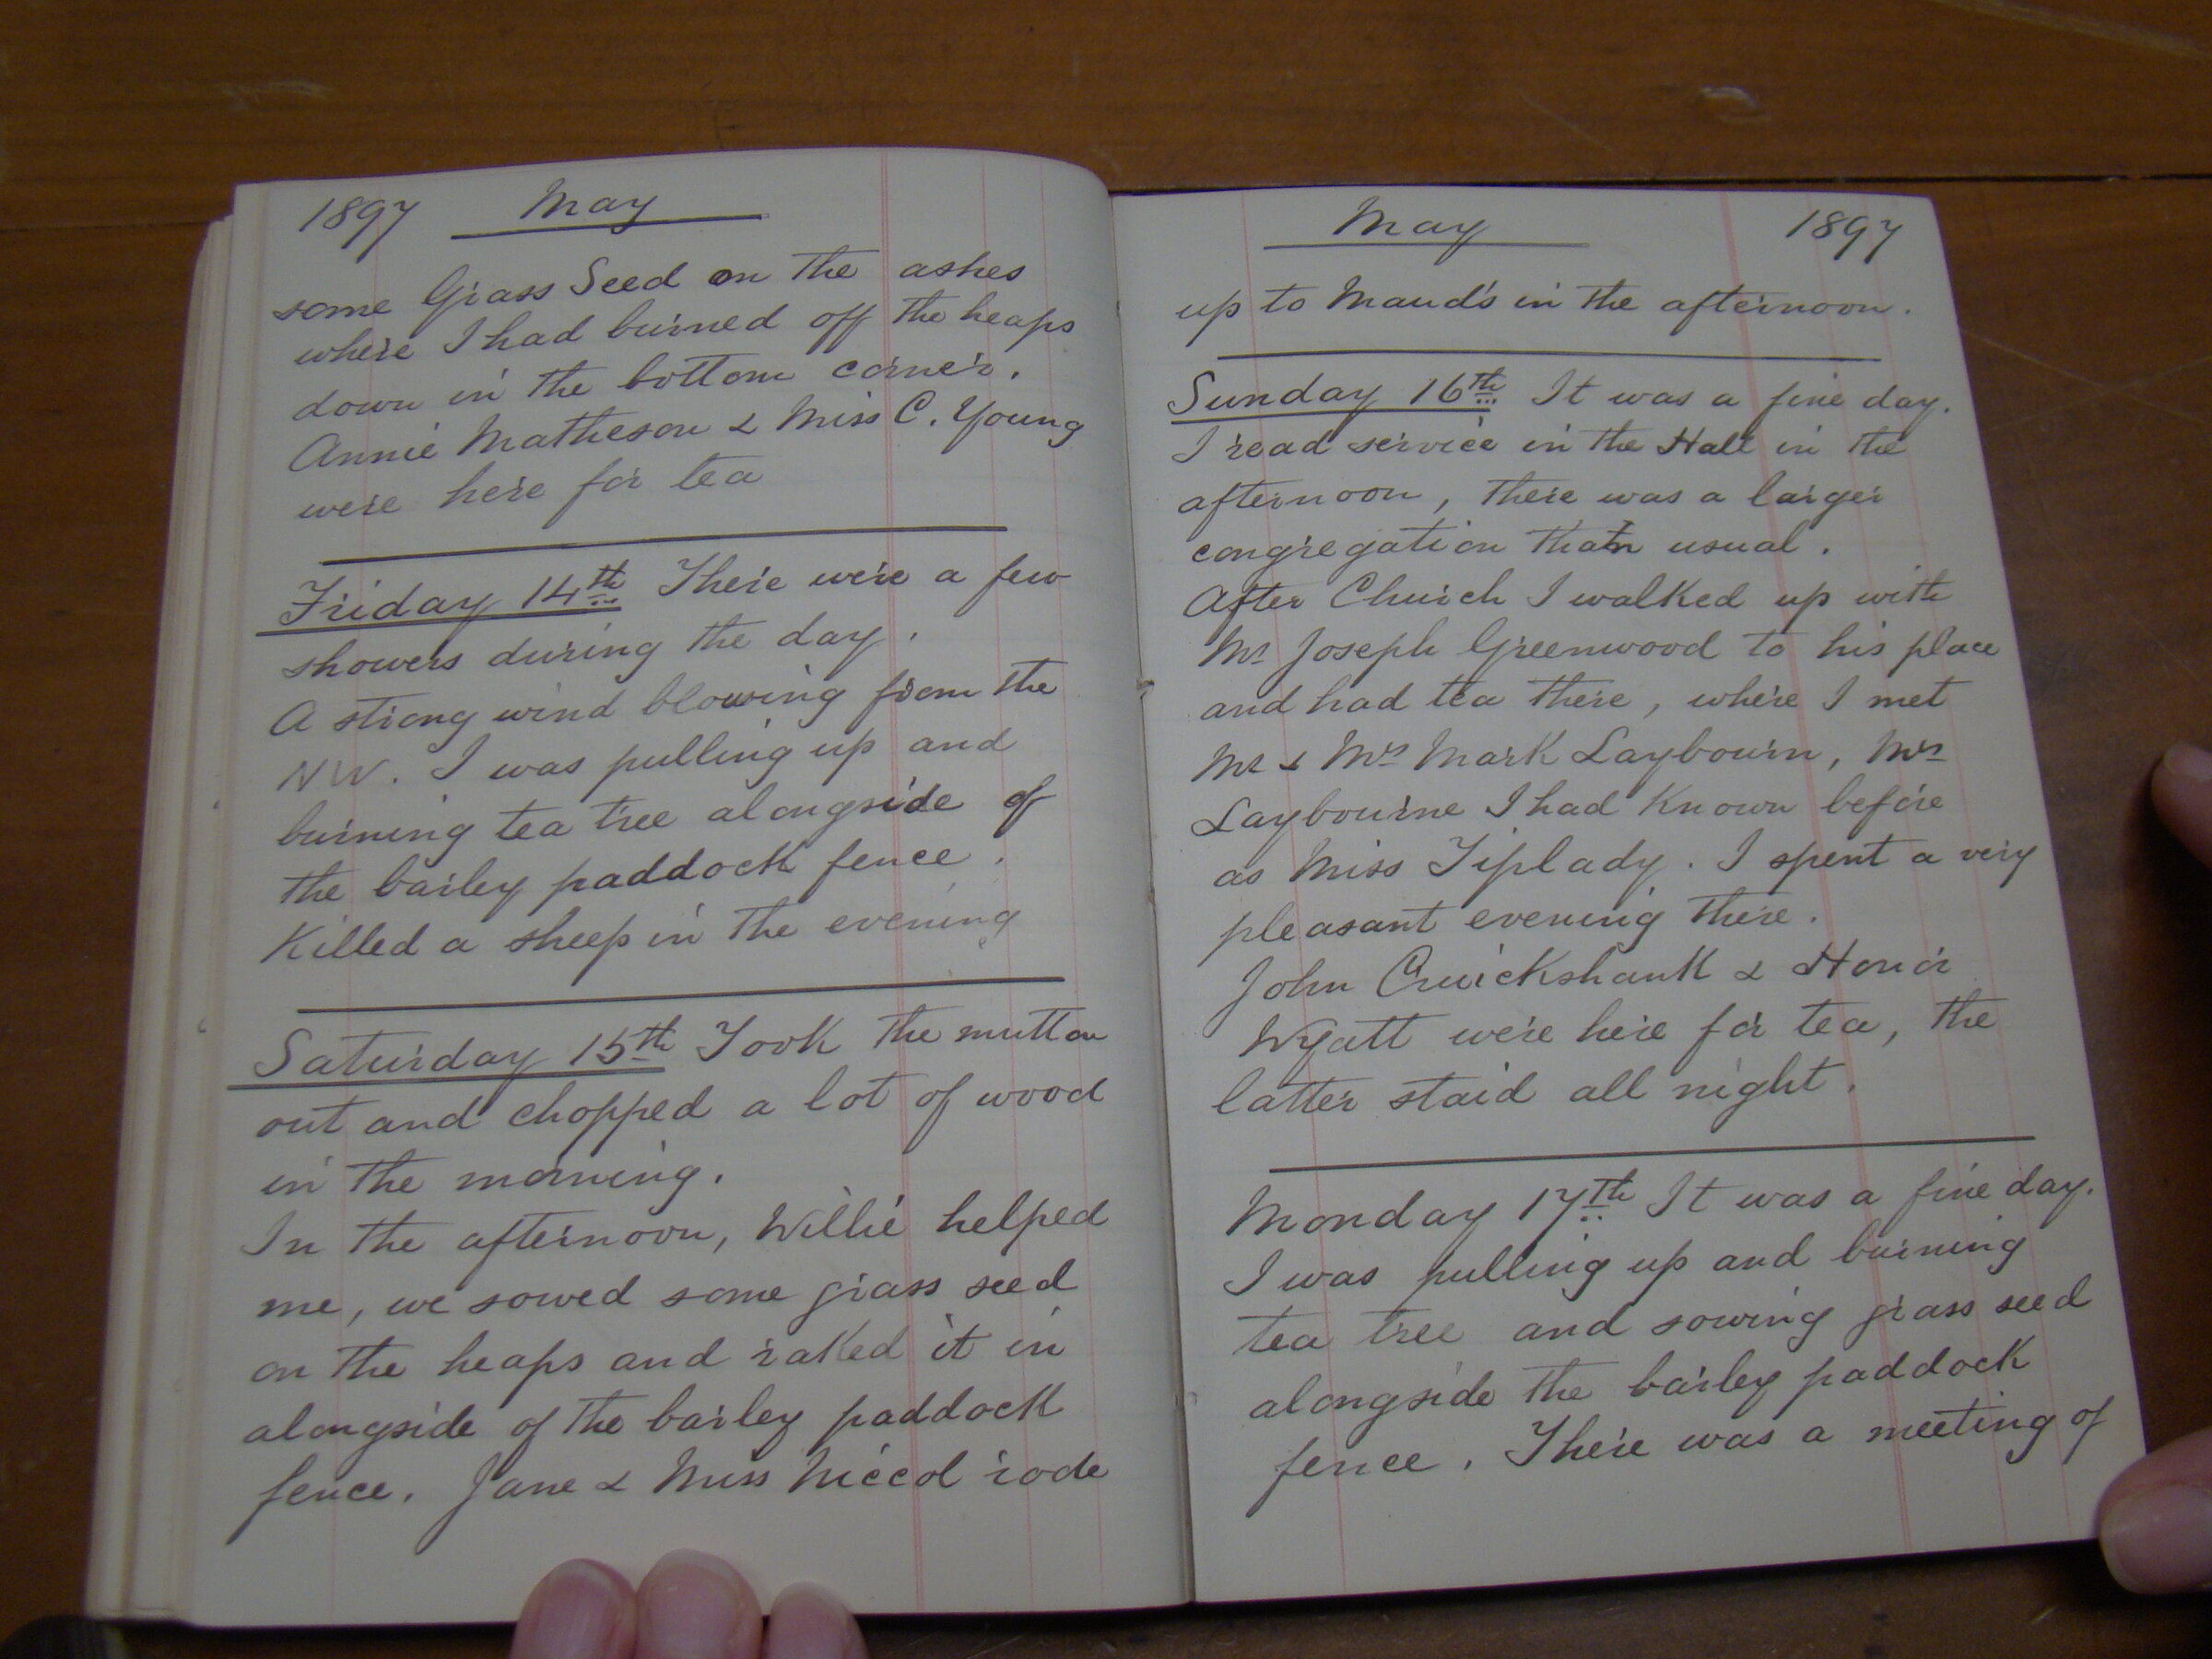 1897 May
some Grass Seed on the ashes
where I had burned off the heaps
down in the bottom corner.
Annie Matheson & Miss C. Young
were here for tea
Friday 14th There were a few
showers during the day.
A strong wind blowing from the
NW. I was pulling up and
burning tea tree alongside of
the barley paddock fence.
Killed a sheep in the evening
Saturday 15th Took the mutton
out and chopped a lot of wood
in the morning.
In the afternoon, Willie helped
me, we sowed some grass seed
on the heaps and raked it in
alongside of the barley paddock
fence. Jane & Miss Niccol rode
May 1897
up to Maud's in the afternoon.
Sunday 16th It was a fine day.
I read service in the Hall in the
afternoon, there was a larger
congregation than usual.
After Church I walked up with
Mr Joseph Greenwood to his place
and had tea there, where I met
Mr & Mrs Mark Laybourn, Mrs
Laybourne I had known before
as Miss Tiplady. I spent a very
pleasant evening there.
John Cruickshank & Honor
Wyatt were here for tea, the
latter staid all night.
Monday 17th It was a fine day.
I was pulling up and burning
tea tree and sowing grass seed
alongside the barley paddock
fence. There was a meeting of